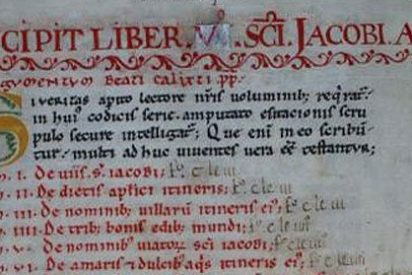 CIPIT LIBER . V . SC̄I. JACOBI A
GUMENTUM BEATI CALIXTI PP̄.
SI veritas a perito lectore nr̄is voluminib; reqͥrat᷑.
in huiꝰ codicis serie. amputato esitacionis scru
pulo secure intelligat᷑; Que eni in eo scribū
tur. multi adhuc viventes vera eē testantur;
. I. De viis sc̄i iacobi; fo. c le iii
. II. De dietis apl̄ici itineris; fo. c le iii
. III. De nominib; villarū itineris eiꝰ; fo. c le iii
. IIII. De trib; bonis edib; mundi; fo. c le iiii
. V. De nominib; viator sc̄i iacobi; fo. c le iiii
. VI. De amaris et dulcib; aq̄s itineris eiꝰ; c le